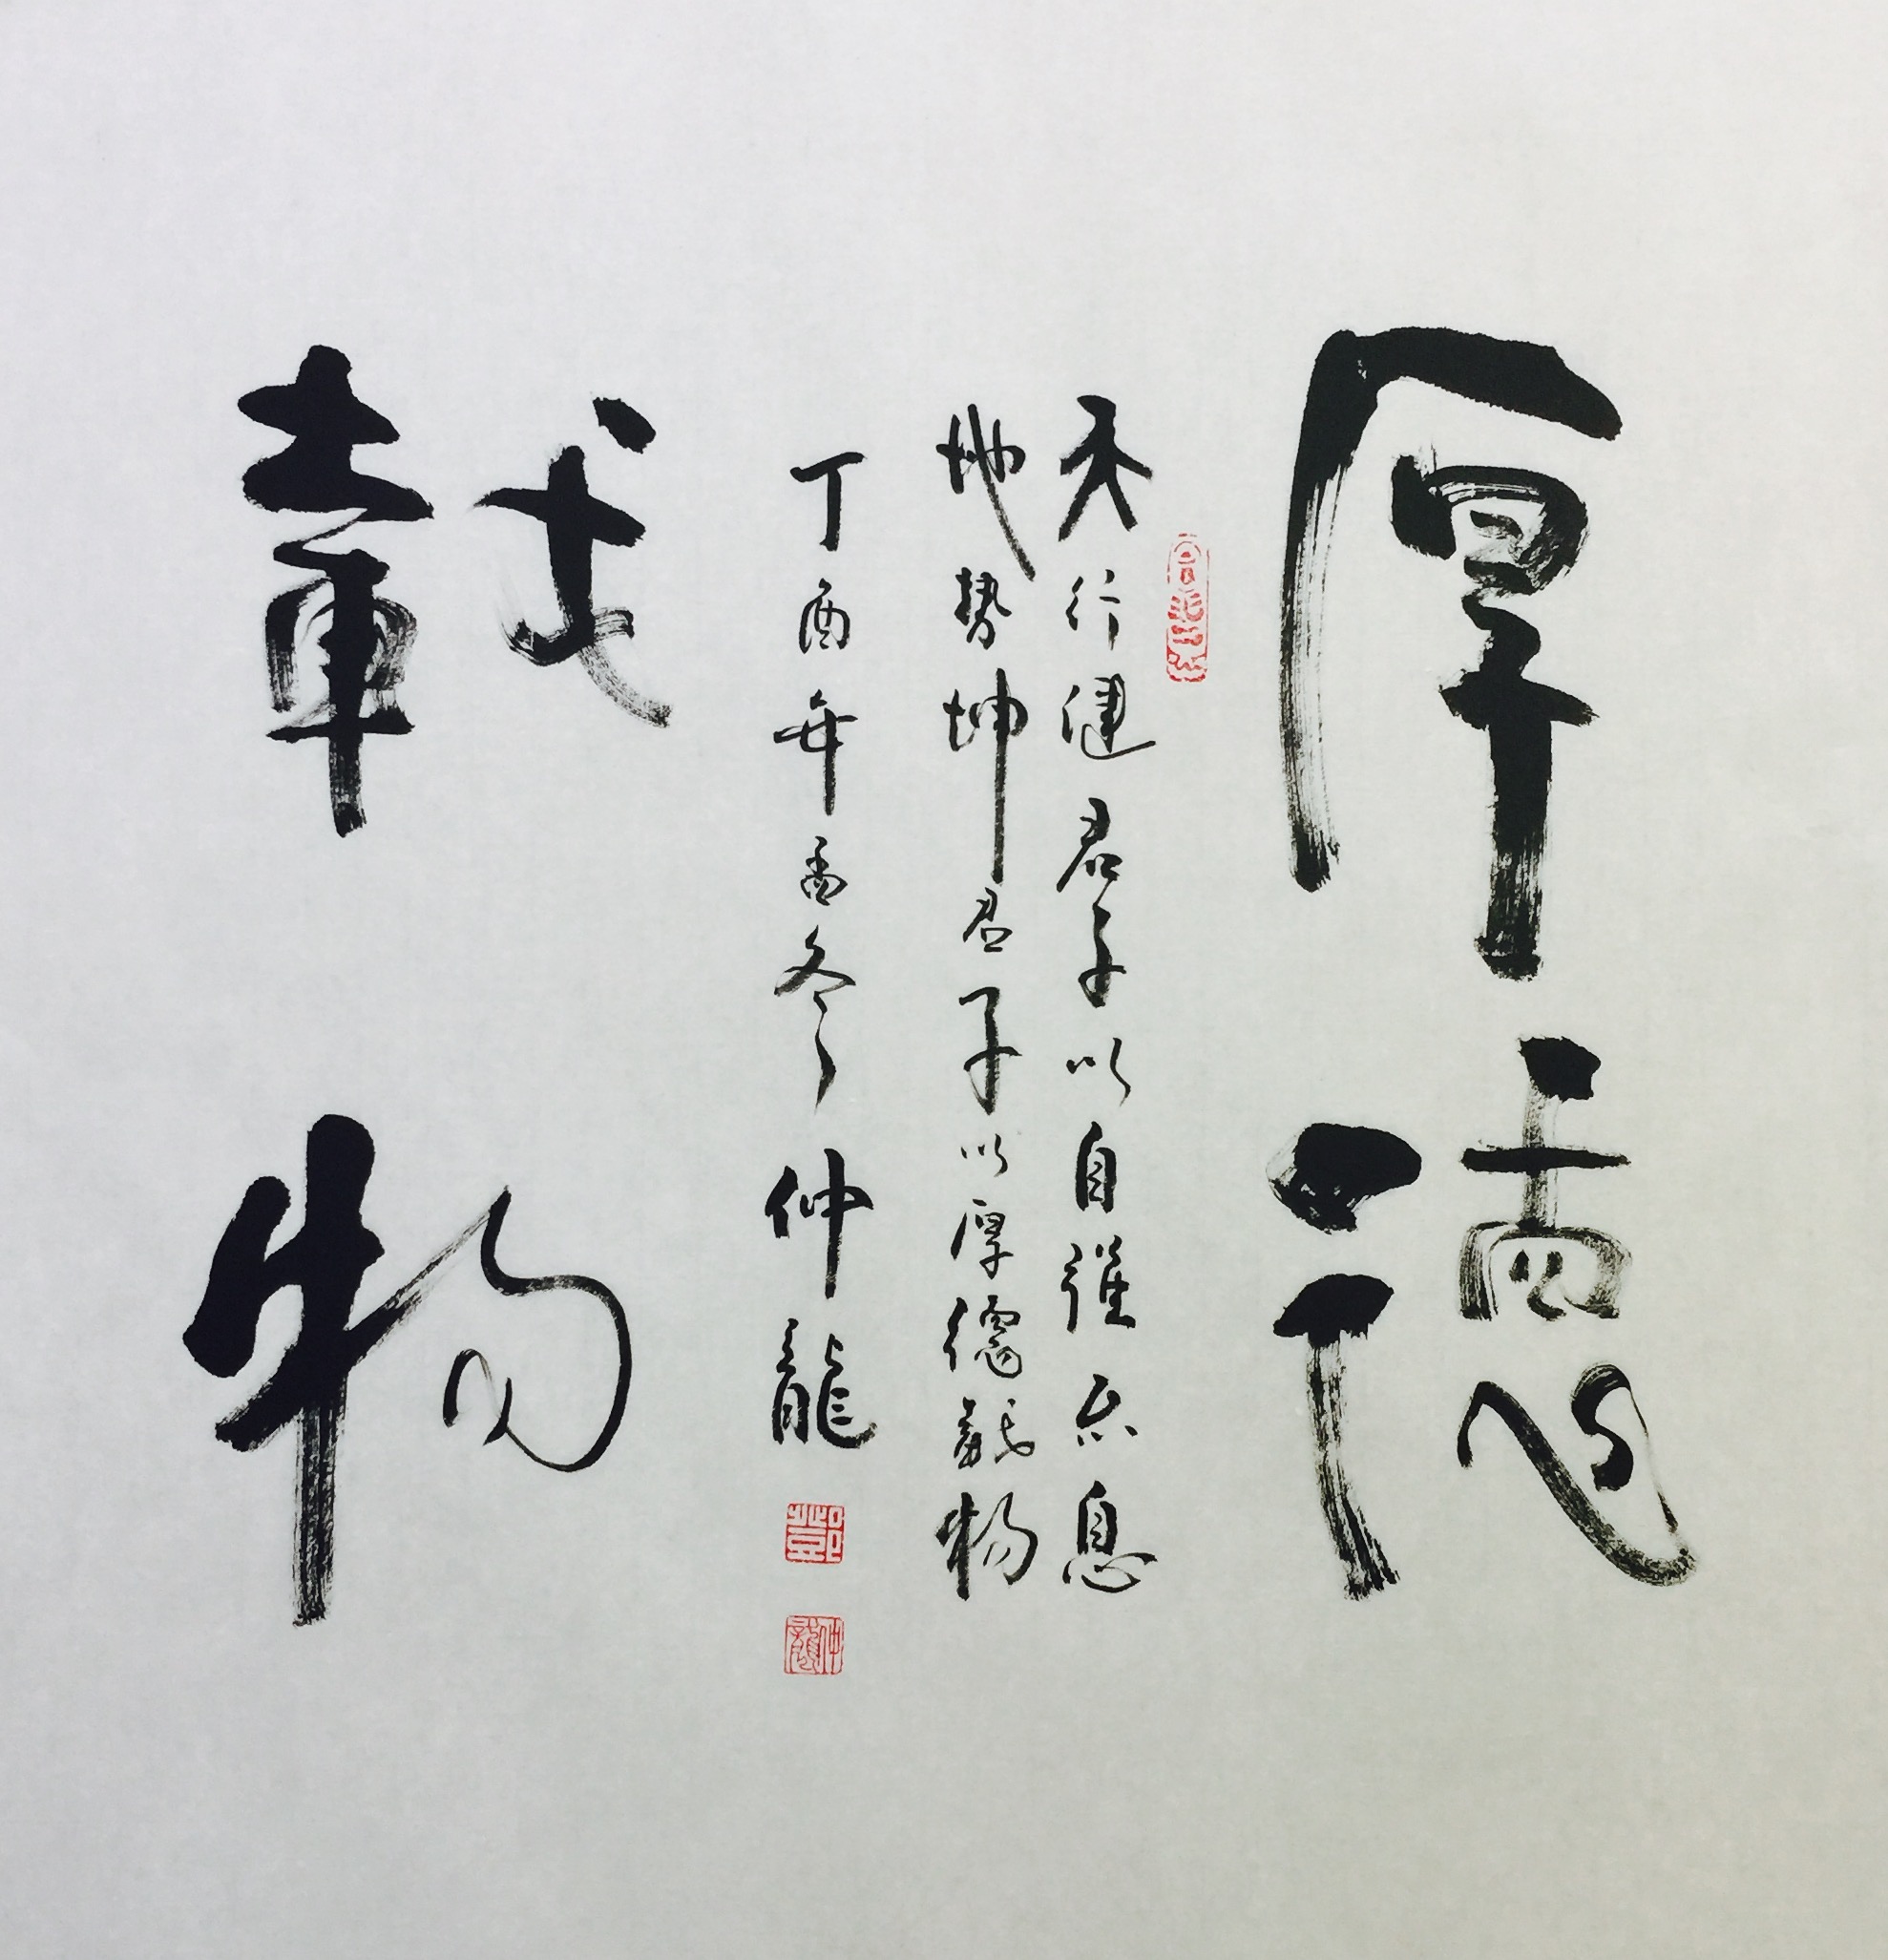 厚德
天行健君子以自強不息
地勢坤君子以厚德載物
丁酉年孟冬仲龍
仲龍
載物